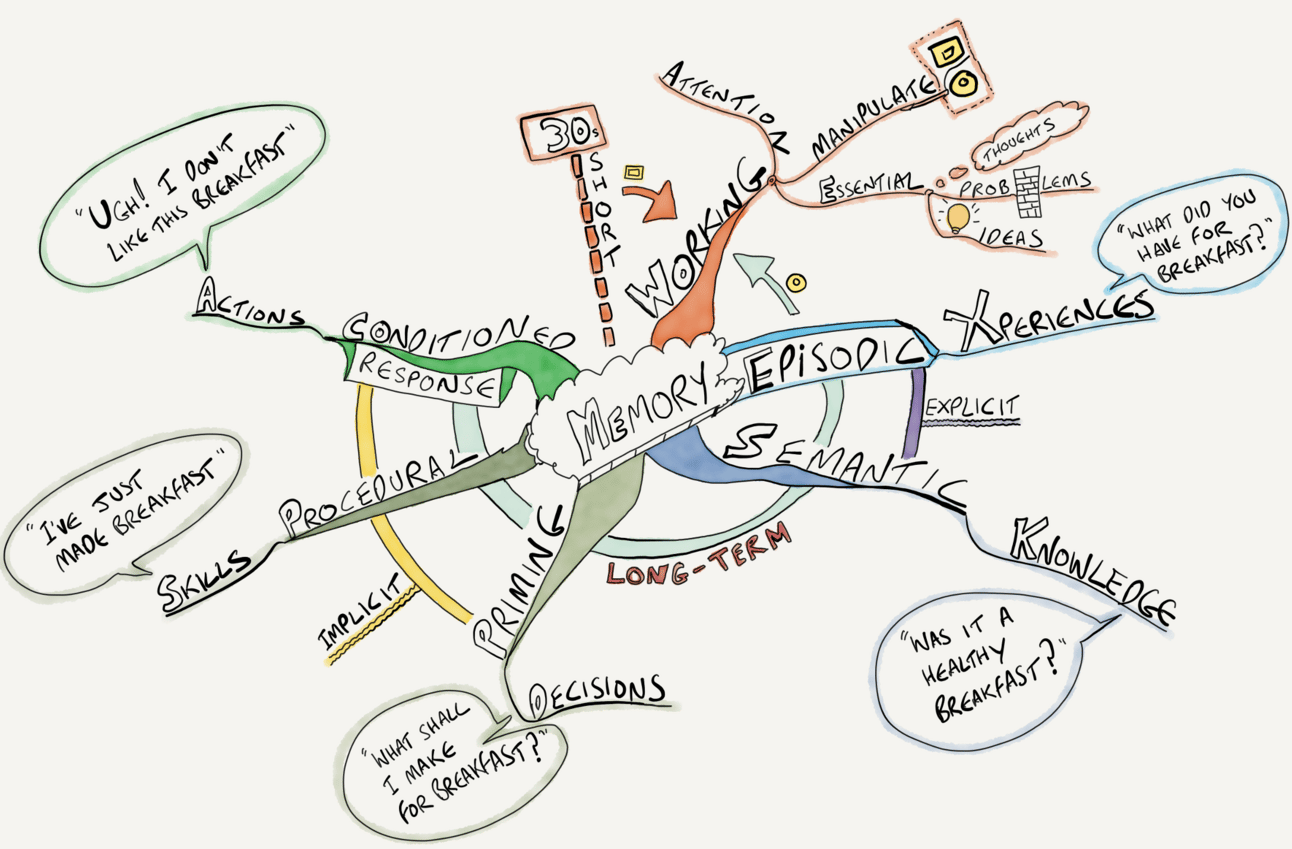 MEMORY
30s
SHORT
WORKING
ATTENTION
MANIPULATE
ESSENTIAL
THOUGHTS
PROBLEMS
IDEAS
EPISODIC
XPERIENCES
"WHAT DID YOU
HAVE FOR
BREAKFAST?"
EXPLICIT
SEMANTIC
KNOWLEDGE
"WAS IT A
HEALTHY
BREAKFAST?"
LONG-TERM
PRIMING
DECISIONS
"WHAT SHALL
I MAKE
FOR BREAKFAST?"
IMPLICIT
PROCEDURAL
SKILLS
"I'VE JUST
MADE BREAKFAST"
CONDITIONED
RESPONSE
ACTIONS
"UGH! I DON'T
LIKE THIS BREAKFAST"